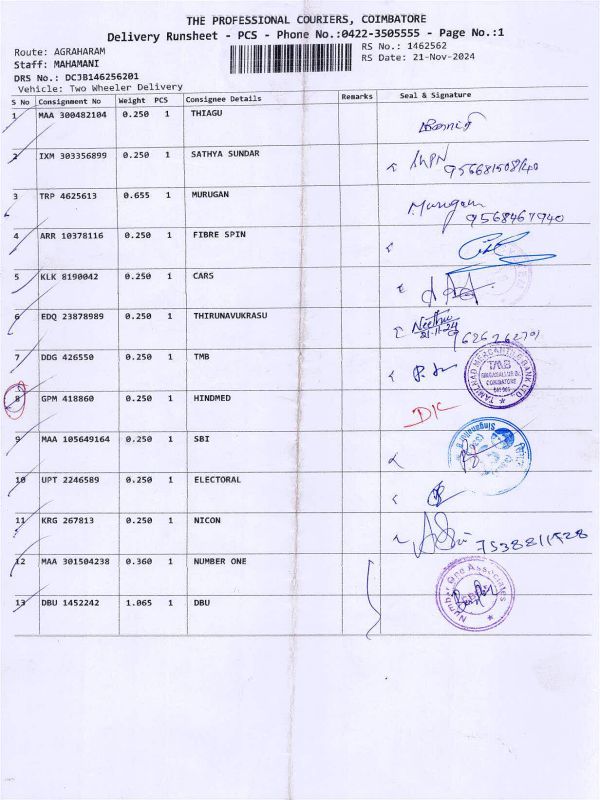 THE PROFESSIONAL COURIERS, COIMBATORE
Delivery Runsheet - PCS - Phone No.:0422-3505555 - Page No.:1
Route: AGRAHARAM
RS No.: 1462562
Staff: MAHAMANI
RS Date: 21-Nov-2024
DRS No.: DCJB146256201
Vehicle: Two Wheeler Delivery
S No Consignment No Weight PCS Consignee Details Remarks Seal & Signature
1 MAA 300482104 0.250 1 THIAGU
2 IXM 303356899 0.250 1 SATHYA SUNDAR
3 TRP 4625613 0.655 1 MURUGAN Murugan
9568467940
4 ARR 10378116 0.250 1 FIBRE SPIN
5 KLK 8190042 0.250 1 CARS
6 EDQ 23878989 0.250 1 THIRUNAVUKRASU Neethu
21-11-24
7 DDG 426550 0.250 1 TMB
TAMILNAD MERCANTILE BANK LTD.
TMB
COIMBATORE
8 GPM 418860 0.250 1 HINDMED DK
9 MAA 105649164 0.250 1 SBI
10 UPT 2246589 0.250 1 ELECTORAL
11 KRG 267813 0.250 1 NICON
12 MAA 301504238 0.360 1 NUMBER ONE
Number One Associates
13 DBU 1452242 1.065 1 DBU